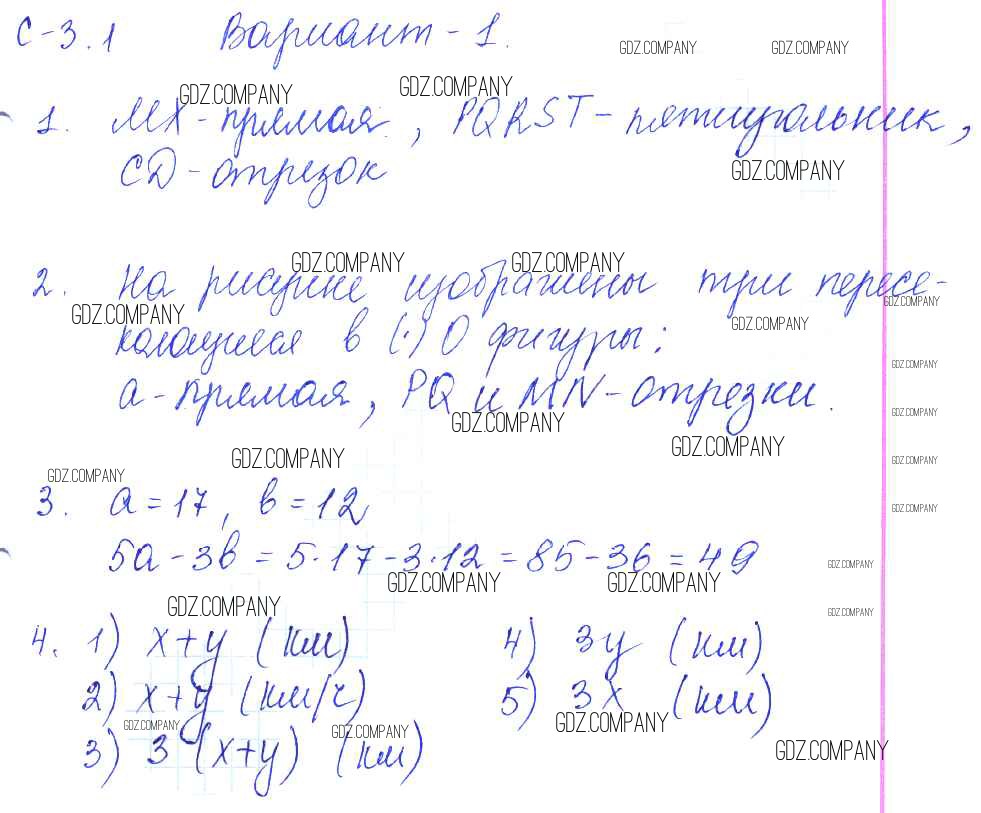 С-3.1 Вариант-1.
GDZ.COMPANY GDZ.COMPANY
GDZ.COMPANY GDZ.COMPANY
1. MX-прямая, PQRST-пятиугольник,
GDZ.COMPANY
CD-отрезок
GDZ.COMPANY GDZ.COMPANY
2. На рисунке изображены три пересе-
GDZ.COMPANY GDZ.COMPANY GDZ.COMPANY
кающиеся в (·) О фигуры:
GDZ.COMPANY
а-прямая, PQ и MN-отрезки.
GDZ.COMPANY GDZ.COMPANY
GDZ.COMPANY GDZ.COMPANY
GDZ.COMPANY GDZ.COMPANY
3. a=17, в=12
GDZ.COMPANY
5a-3в=5·17-3·12=85-36=49
GDZ.COMPANY GDZ.COMPANY GDZ.COMPANY
GDZ.COMPANY GDZ.COMPANY
4. 1) x+y (км) 4) 3y (км)
2) x+y (км/ч) 5) 3x (км)
GDZ.COMPANY GDZ.COMPANY GDZ.COMPANY
3) 3(x+y) (км)
GDZ.COMPANY